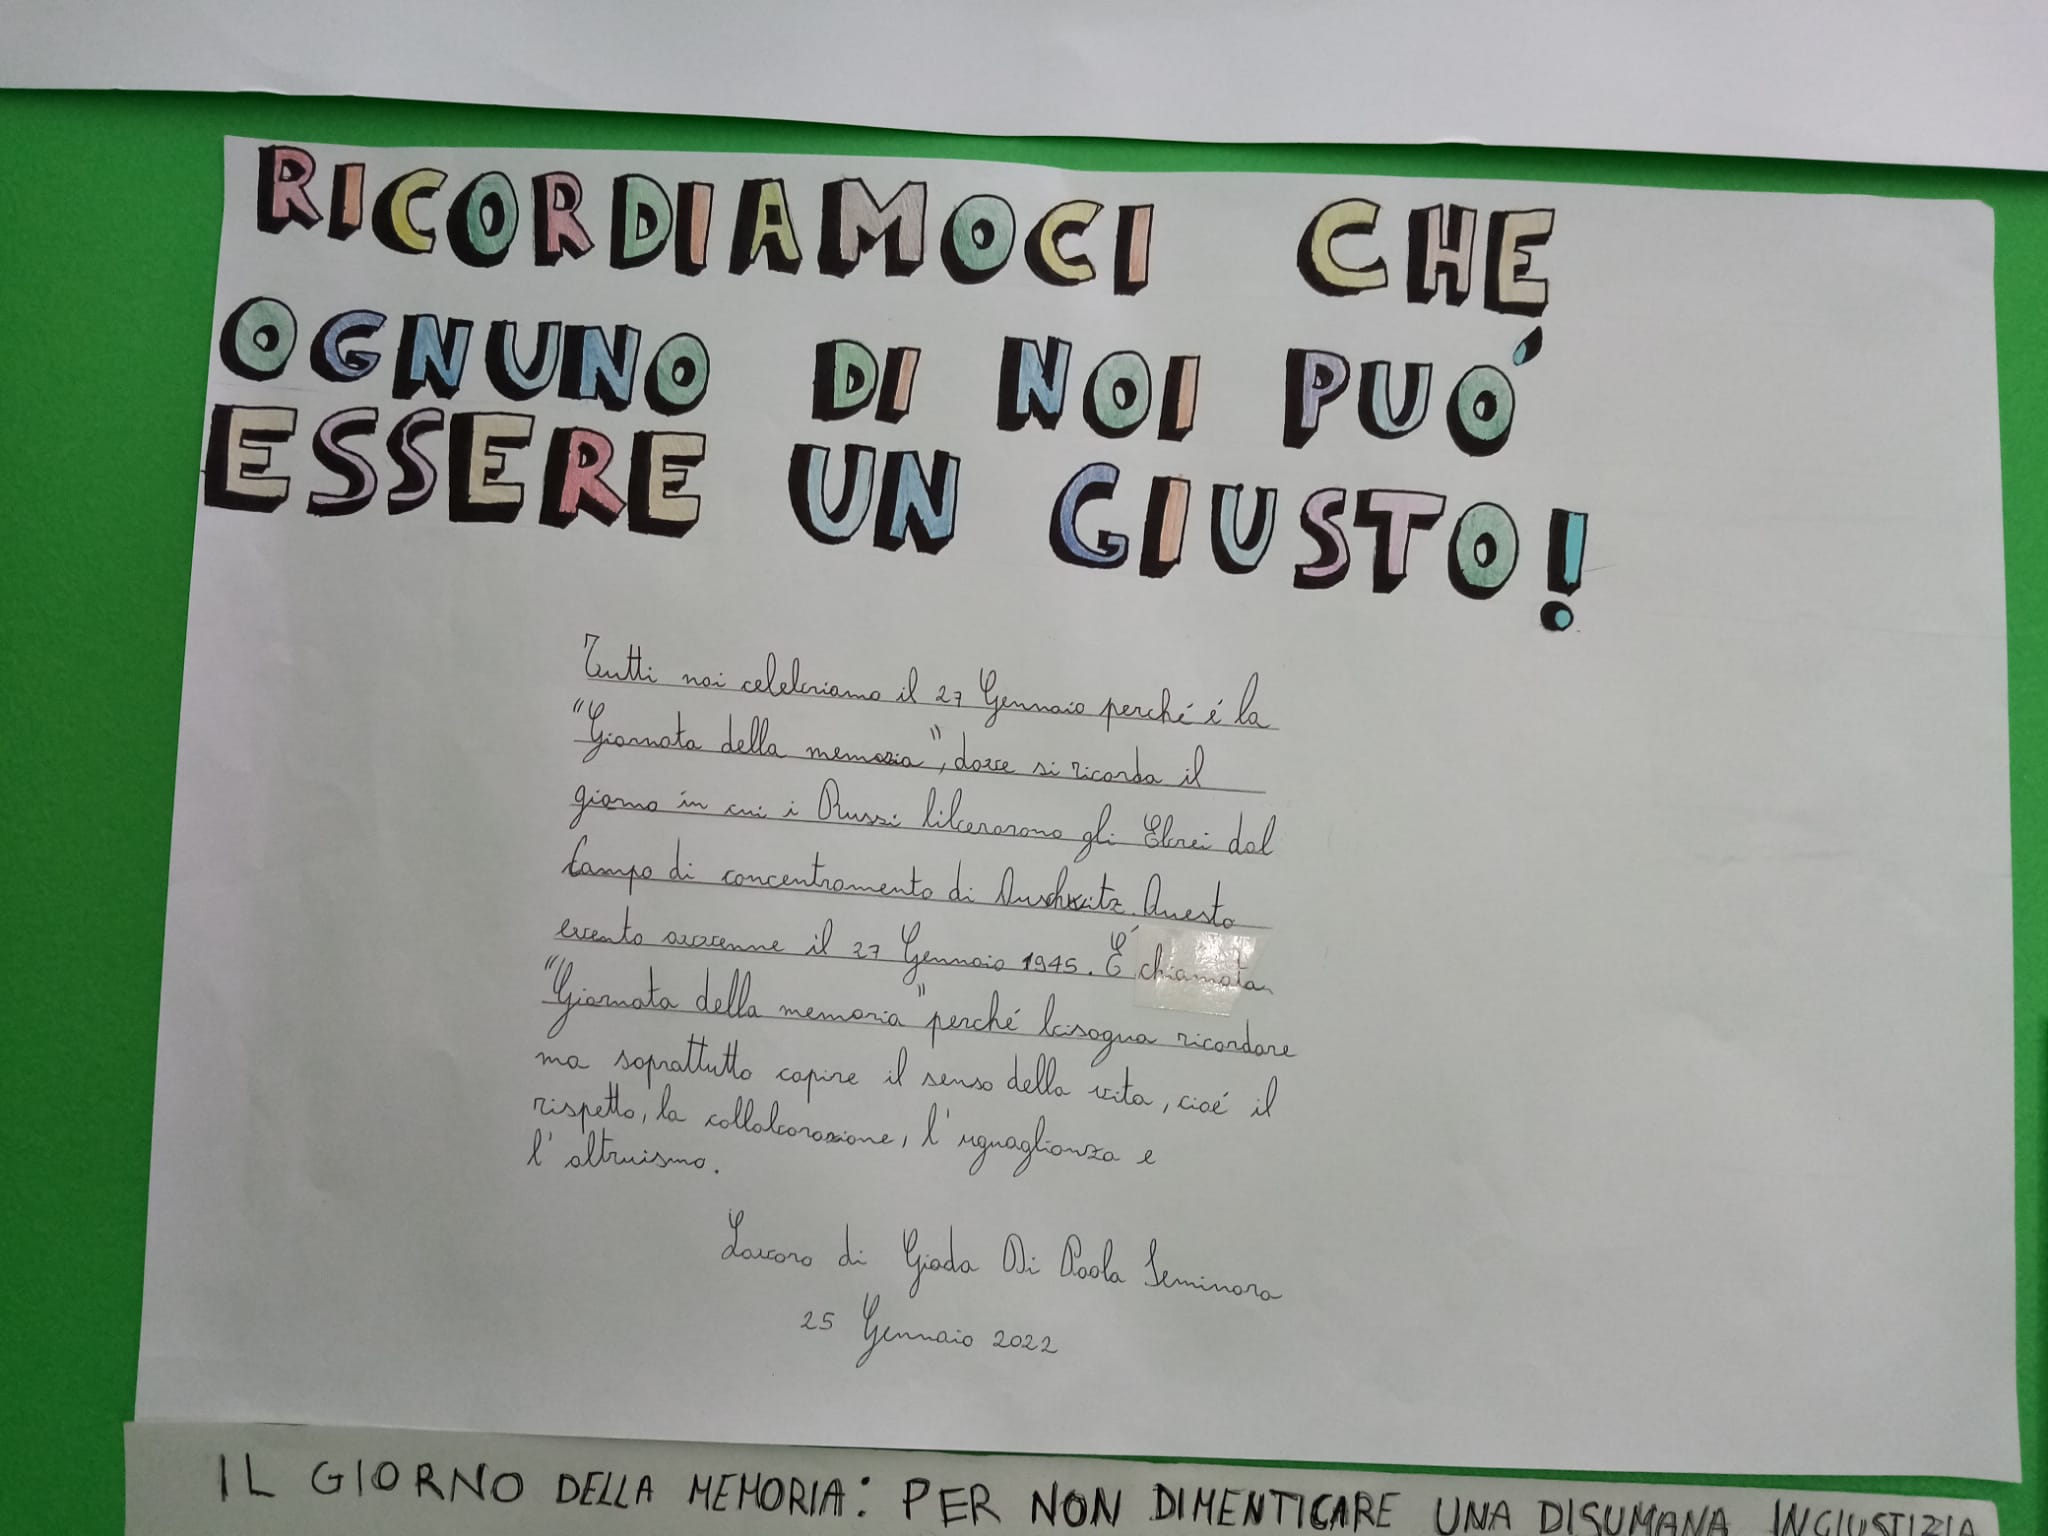 RICORDIAMOCI CHE
OGNUNO DI NOI PUÓ
ESSERE UN GIUSTO!
Tutti noi celebriamo il 27 Gennaio perché é la
"Giornata della memoria", dove si ricorda il
giorno in cui i Russi liberarono gli Ebrei dal
Campo di concentramento di Auschwitz. Questo
evento avvenne il 27 Gennaio 1945. É chiamata
"Giornata della memoria" perché bisogna ricordare
ma soprattutto capire il senso della vita, cioé il
rispetto, la collaborazione, l'uguaglianza e
l'altruismo.
Lavoro di Giada Di Paola Seminara
25 Gennaio 2022
IL GIORNO DELLA MEMORIA: PER NON DIMENTICARE UNA DISUMANA INGIUSTIZIA